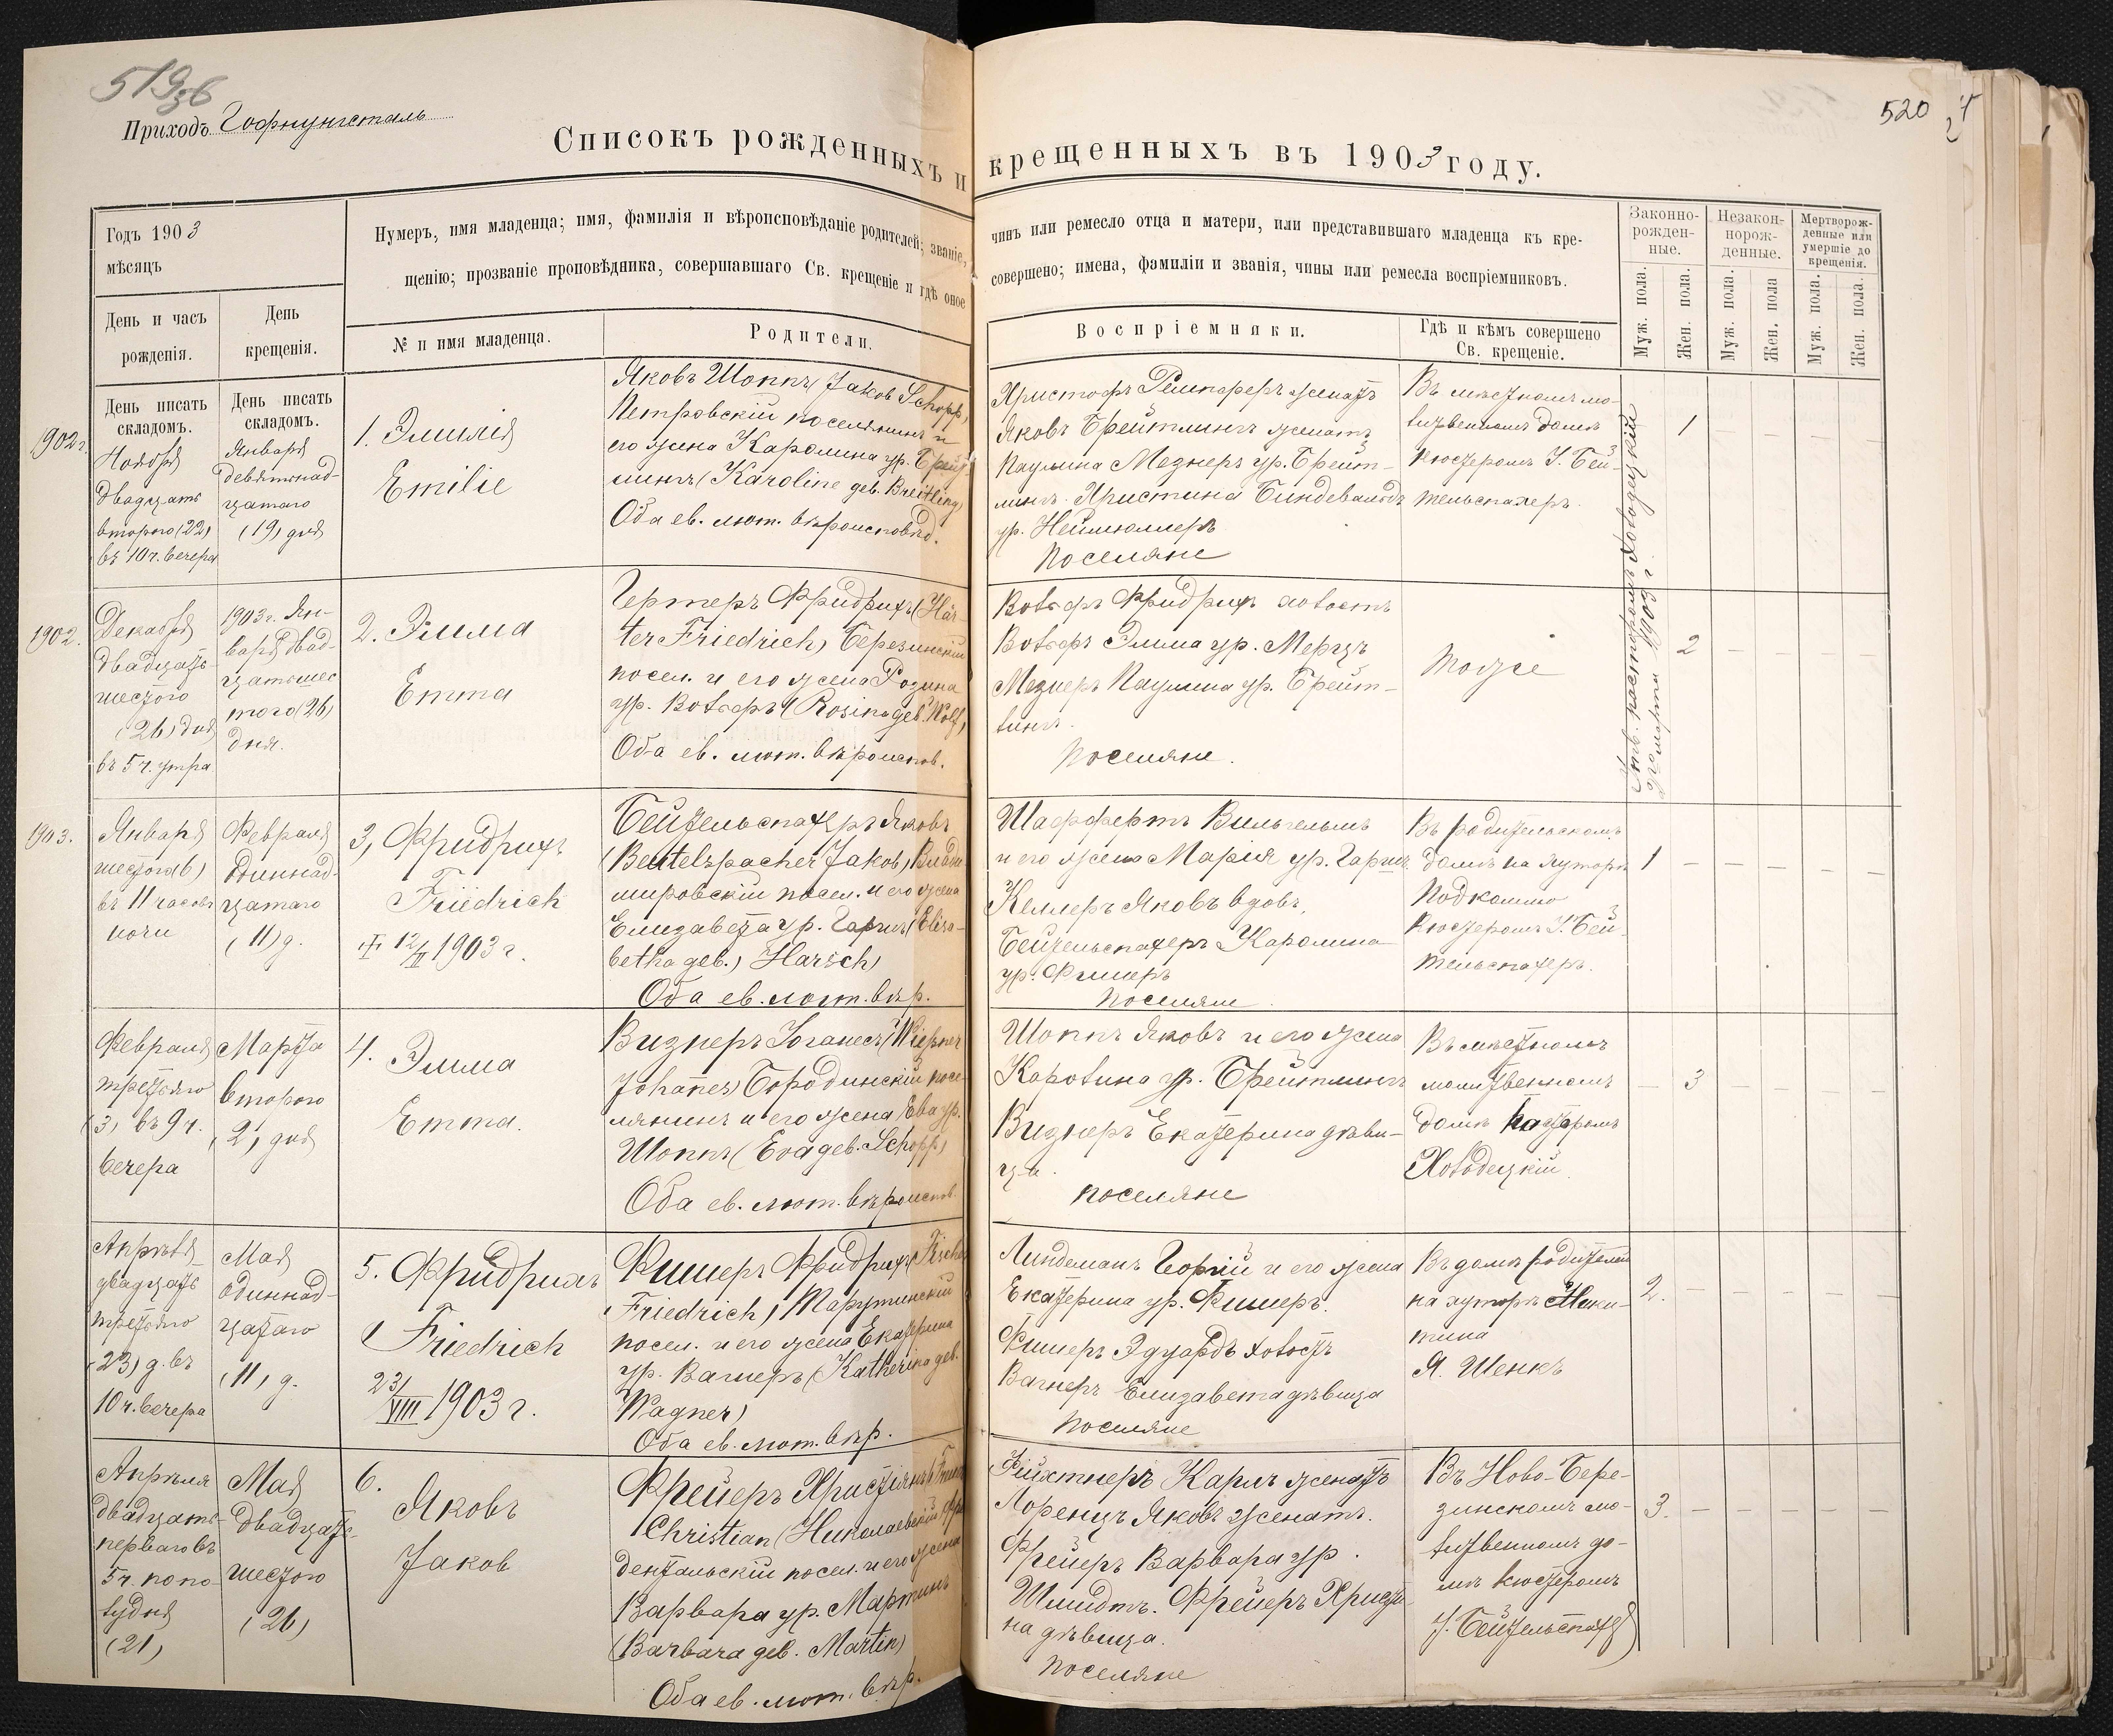 519
36
520
Приходъ Гофнунгсталь
Списокъ рожденныхъ и крещенныхъ въ 1903 году.
Годъ 1903
мѣсяцъ
День и часъ
рожденія.
День
крещенія.
Нумеръ, имя младенца; имя, фамилія и вѣроисповѣданіе родителей; званіе, чинъ или ремесло отца и матери, или представившаго младенца къ кре-
щенію; прозваніе проповѣдника, совершавшаго Св. крещеніе и гдѣ оное совершено; имена, фамиліи и званія, чины или ремесла воспріемниковъ.
№ и имя младенца.
Родители.
Воспріемники.
Гдѣ и кѣмъ совершено
Св. крещеніе.
Законно-
рожден-
ные.
Незакон-
норож-
денные.
Мертворож-
денные или
умершіе до
крещенія.
Муж. пола.
Жен. пола.
Муж. пола.
Жен. пола
Муж. пола.
Жен. пола.
День писать
складомъ.
День писать
складомъ.
1902 г.
Ноября
двадцать
второго (22)
въ 10 ч. вечера
Января
девятнад-
цатаго
(19) дня
1. Эмилія
Emilie
Яковъ Шоппъ (Jakob Schopp)
Петровскій поселянинъ и
его жена Каролина ур. Брейт-
лингъ (Karoline geb. Breitling)
Оба ев. лют. вѣроисповѣд.
Христофъ женатъ
Яковъ Брейтлингъ женатъ
Паулина Мезнеръ ур. Брейт-
лингъ. Христина Биндевальдъ
ур. Неймюллеръ
Поселяне
Въ мѣстномъ мо-
литвенномъ домѣ
Кюстеромъ І. Бей-
тельспахеръ.
1
1902.
Декабря
двадцать
шестого
(26) дня
въ 5 ч. утра
1903 г. Ян-
варя двад-
цать шес
того (26)
дня.
2. Эмма
Emma
Гертеръ Фридрихъ (Här-
ter Friedrich) Березинскій
посел. и его жена Розина
ур. Вольфъ (Rosina geb. Wolf)
Оба ев. лют. вѣроиспов.
Вольфъ Фридрихъ холостъ
Вольфъ Эмма ур. Мерцъ
Мезнеръ Паулина ур. Брейт-
лингъ.
Поселяне.
Тоже
2
Утв. пасторомъ Холодецкій
марта 1903 г.
1903.
Января
шестого (6)
въ 11 часовъ
ночи
Февраля
Одиннад-
цатаго
(11) д.
3, Фридрихъ
Friedrich
12/II 1903 г.
Бейтельспахеръ Яковъ
(Beutelspacher Jakob) Влади-
мировскій посел. и его жена
Елизавета ур. Гаршъ (Elisa-
betha geb.) Harsch)
Оба ев. лют. вѣр.
Шафертъ Вильгельмъ
и его жена Марія ур. Гаршъ
Келлеръ Яковъ вдовъ,
Бейтельспахеръ Каролина
ур. Фишеръ
Поселяне.
Въ родительскомъ
домѣ на хуторѣ
Кюстеромъ І. Бей-
тельспахеръ.
1
Февраля
третьяго
(3) въ 9 ч.
вечера
Марта
второго
(2) дня
4. Эмма
Emma.
Визнеръ Іоганесъ (Wiesner
Johannes) Бородинскій посе-
лянинъ и его жена Ева ур.
Шоппъ (Eva geb. Schopp)
Оба ев. лют. вѣроиспов.
Шоппъ Яковъ и его жена
Каролина ур. Брейтлингъ
Визнеръ Екатерина дѣви-
ца.
поселяне
Въ мѣстномъ
молитвенномъ
домѣ Пасторомъ
Холодецкій.
3
Апрѣля
двадцать
третьяго
(23) д. въ
10 ч. вечера
Мая
одиннад-
цатаго
(11) д.
5. Фридрихъ
Friedrich
23/VIII 1903 г.
Фишеръ Фридрихъ (Fischer
Friedrich) Тарутинскій
посел. и его жена Екатерина
ур. Вагнеръ (Katherina geb.
Wagner)
Оба ев. лют. вѣр.
Линдеманъ Георгій и его жена
Екатерина ур. Фишеръ.
Фишеръ Эдуардъ холостъ
Вагнеръ Елизавета дѣвица
Поселяне
Въ домѣ родителей
на хуторѣ Мики-
тина
Я. Шенкъ
2.
Апрѣля
двадцать
перваго въ
5 ч. попо-
лудня
(21)
Мая
двадцать
шестого
(26)
6.
Яковъ
Jakob
Фрейеръ Христіянъ
Christian (Николаевскій
посел. и его жена
Варвара ур. Мартинъ
(Barbara geb. Martin)
Оба ев. лют. вѣр.
Фихтнеръ Карлъ женатъ
Лоренцъ Яковъ женатъ.
Фрейеръ Варвара ур.
Шмидтъ. Фрейеръ Христи
на дѣвица.
Поселяне
Въ Ново-Бере-
зинскомъ мо-
литвенномъ до-
мѣ кюстеромъ
І. Бейтельспахеръ
3.